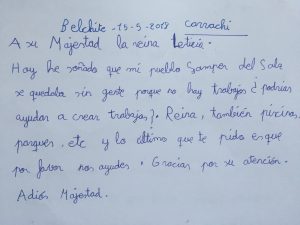 Belchite - 15-5-2018 carrachi
A su Majestad la reina Leticia.
Hoy he soñado que mi pueblo Samper del Salz
se quedaba sin gente porque no hay trabajos ¿podrías
ayudar a crear trabajos?. Reina, también piscinas
parques, etc y lo último que te pido es que
por favor nos ayudes. Gracias por su atención.
Adiós Majestad.